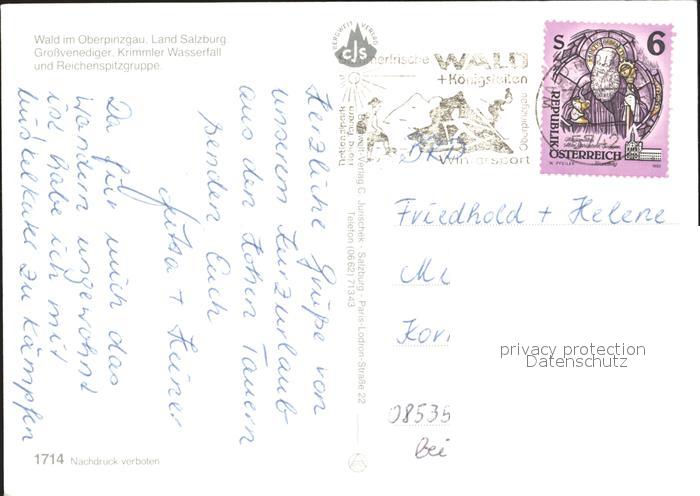 Wald im Oberpinzgau, Land Salzburg.
Großvenediger, Krimmler Wasserfall
und Reichenspitzgruppe.
BERGWELT VERLAG
CJS
WALD
+ Königsleiten
Nationalpark
Hohe Tauern
Oberpinzgau
Wintersport
S 6
REPUBLIK
ÖSTERREICH
Herzliche Grüße von
unserem Kurzurlaub
aus den Hohen Tauern
senden Euch
Jutta + Heiner
Da für mich das
Wandern ungewohnt
ist habe ich mit
Muskelkater zu kämpfen
Bergwelt-Verlag C. Jurischek - Salzburg - Paris-Lodron-Straße 22
Telefon (0662) 71343
Friedhold + Helene
Mi
Kori
privacy protection
Datenschutz
08535
bei
1714 Nachdruck verboten